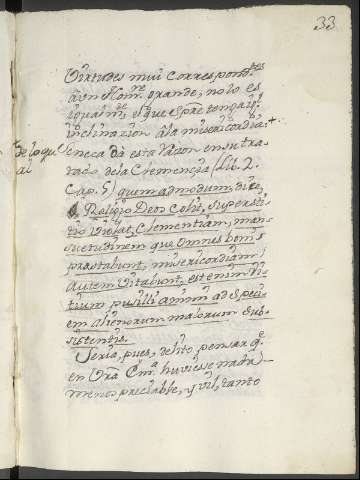 33
Virtudes mui correspond.tes
a un Hom.e grande; no lo es
igualm.te el que siempre tenga
inclinazion ála misericordia: +
eneca dà esta razon en su tra-
tado dela Clemencia (Lib. 2.
Cap. 5) quem ad modum, dize,
Religio Deos Colit, supersti-
tio violat, Clementiam, man-
suetudinem que omnes boni
præstabunt, misericordiam
autem vitabunt, est enim vi-
tium pusilli animi ad speci-
em alienorum malorum sub-
sistentis.
Seria, pues, delito pensar q.e
en Vra Em.a huviesse nada
menos preciable, y vil, tanto